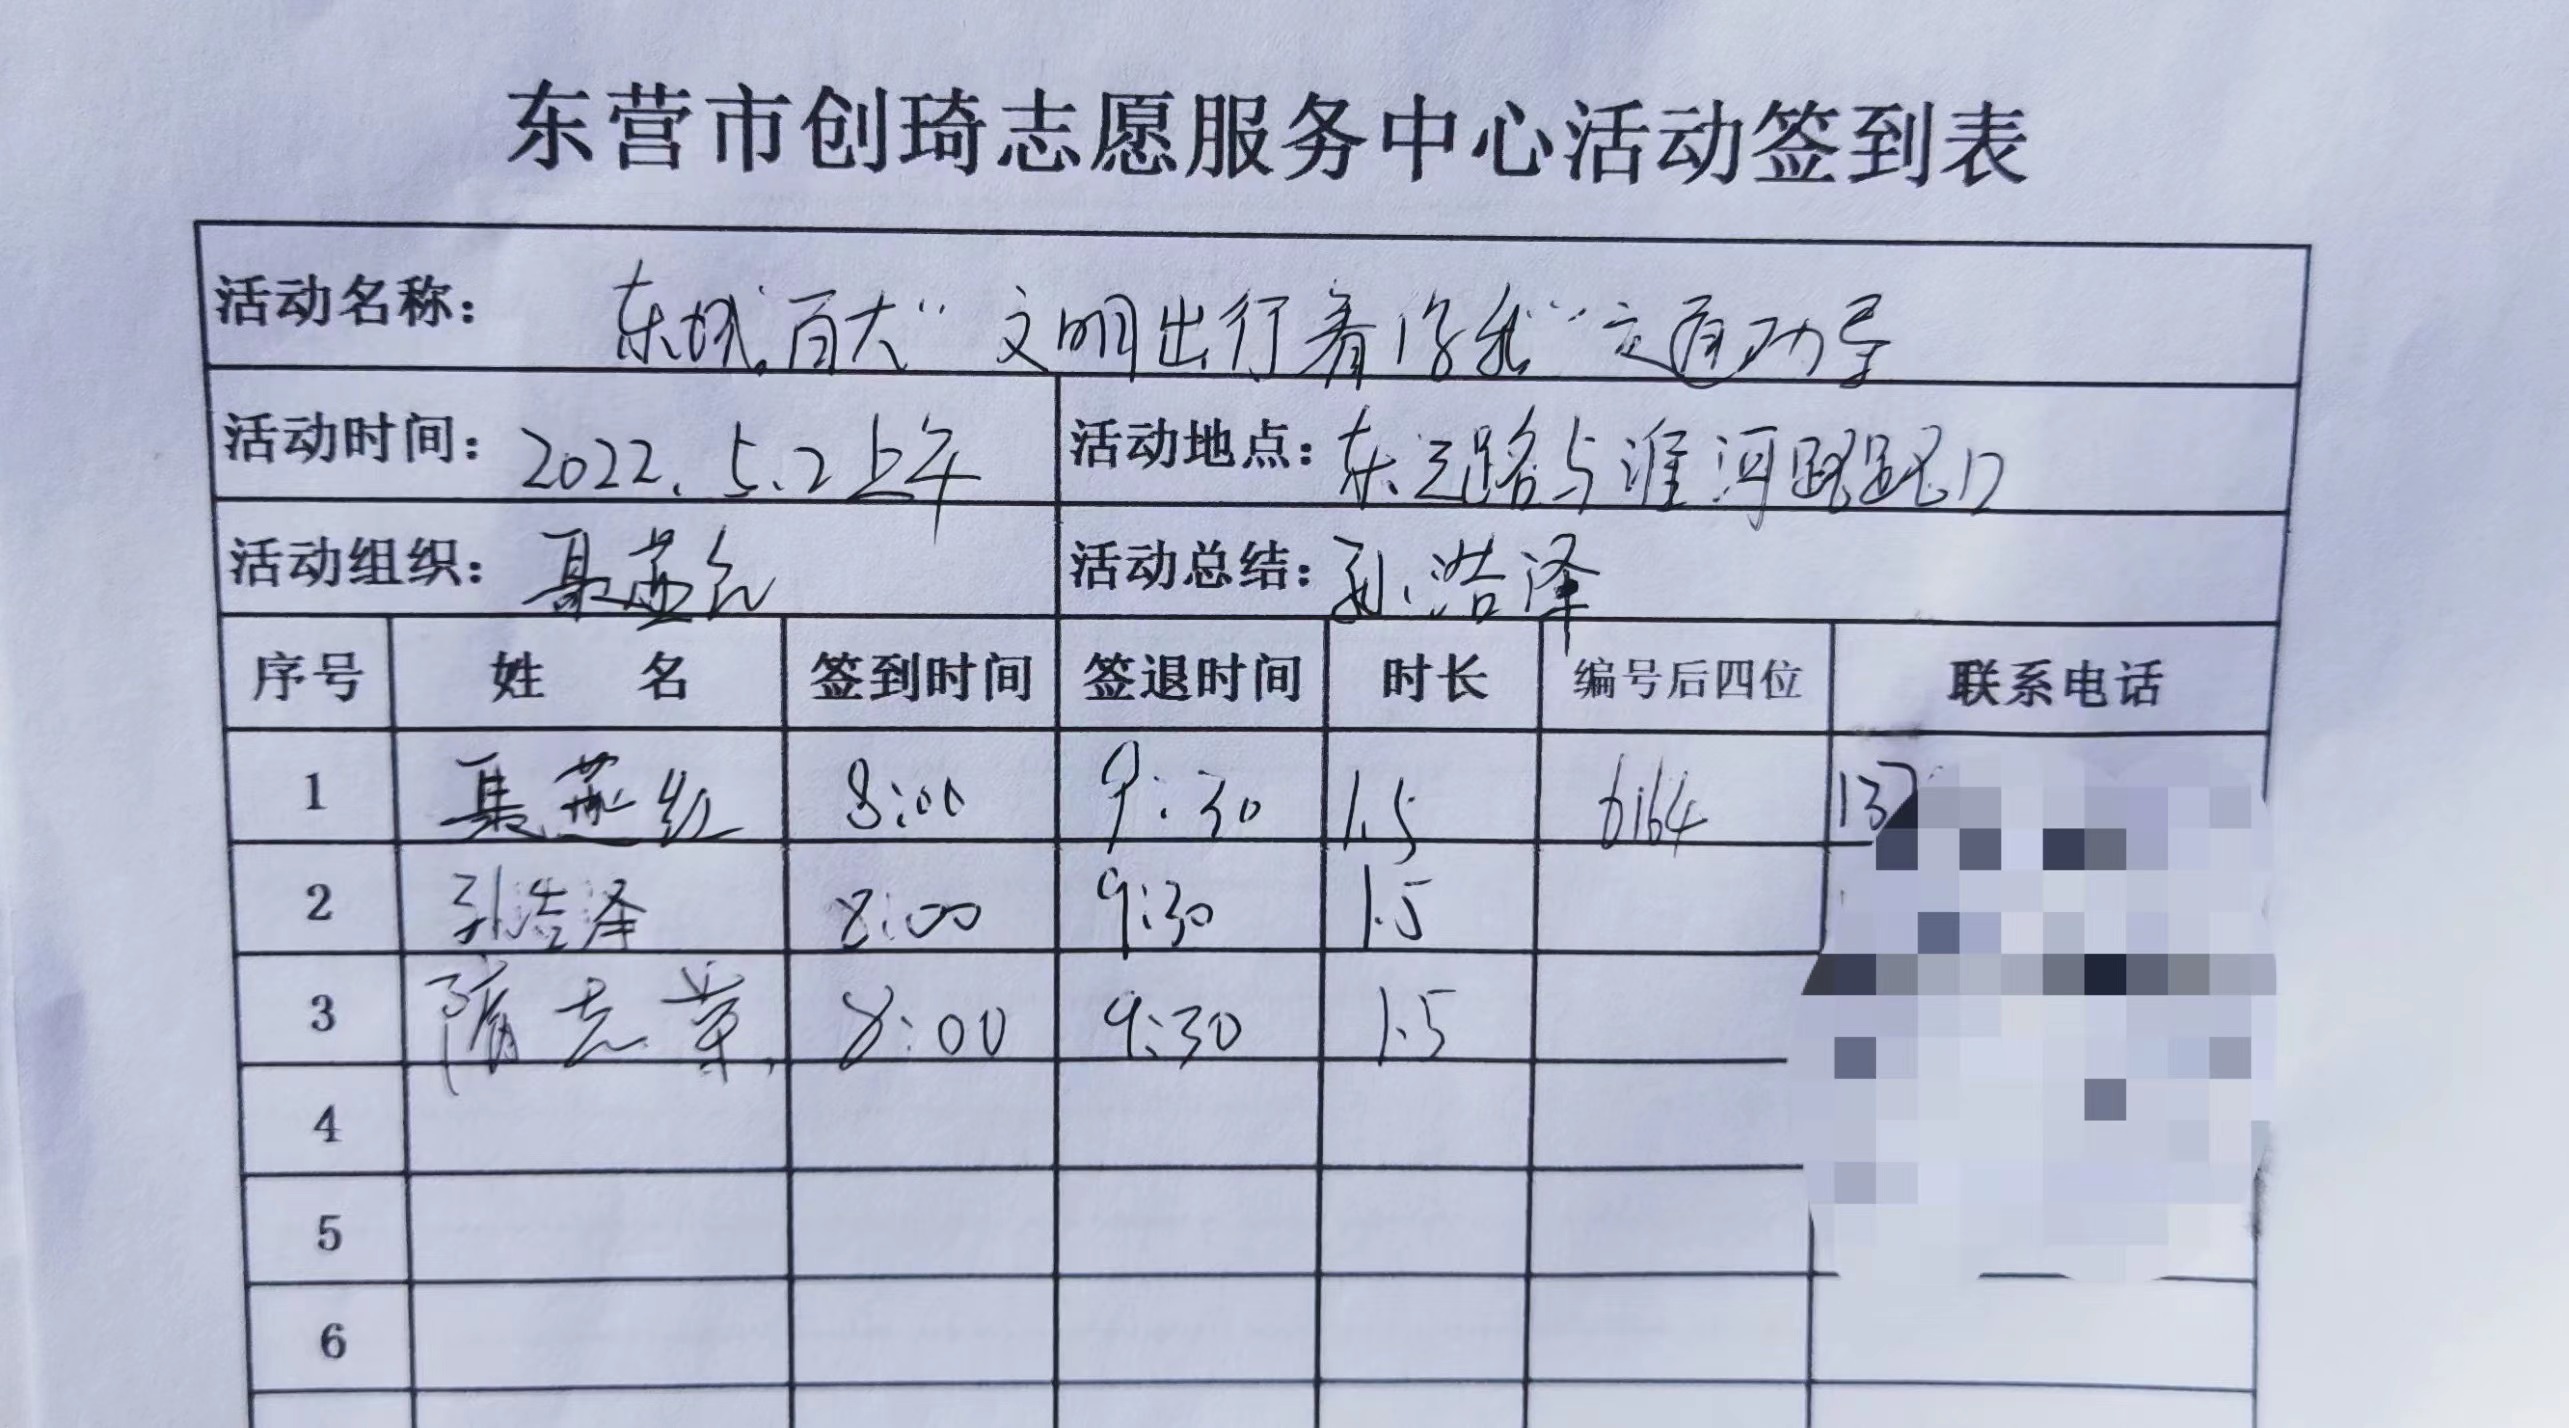 东营市创琦志愿服务中心活动签到表
活动名称： 东城百大“文明出行看你我”交通劝导
活动时间： 2022.5.2上午 活动地点： 东三路与淮河路路口
活动组织： 聂燕红 活动总结： 孙浩泽
序号 姓 名 签到时间 签退时间 时长 编号后四位 联系电话
1 聂燕红 8:00 9:30 1.5 6164 137
2 孙浩泽 8:00 9:30 1.5
3 隋志荣 8:00 9:30 1.5
4
5
6